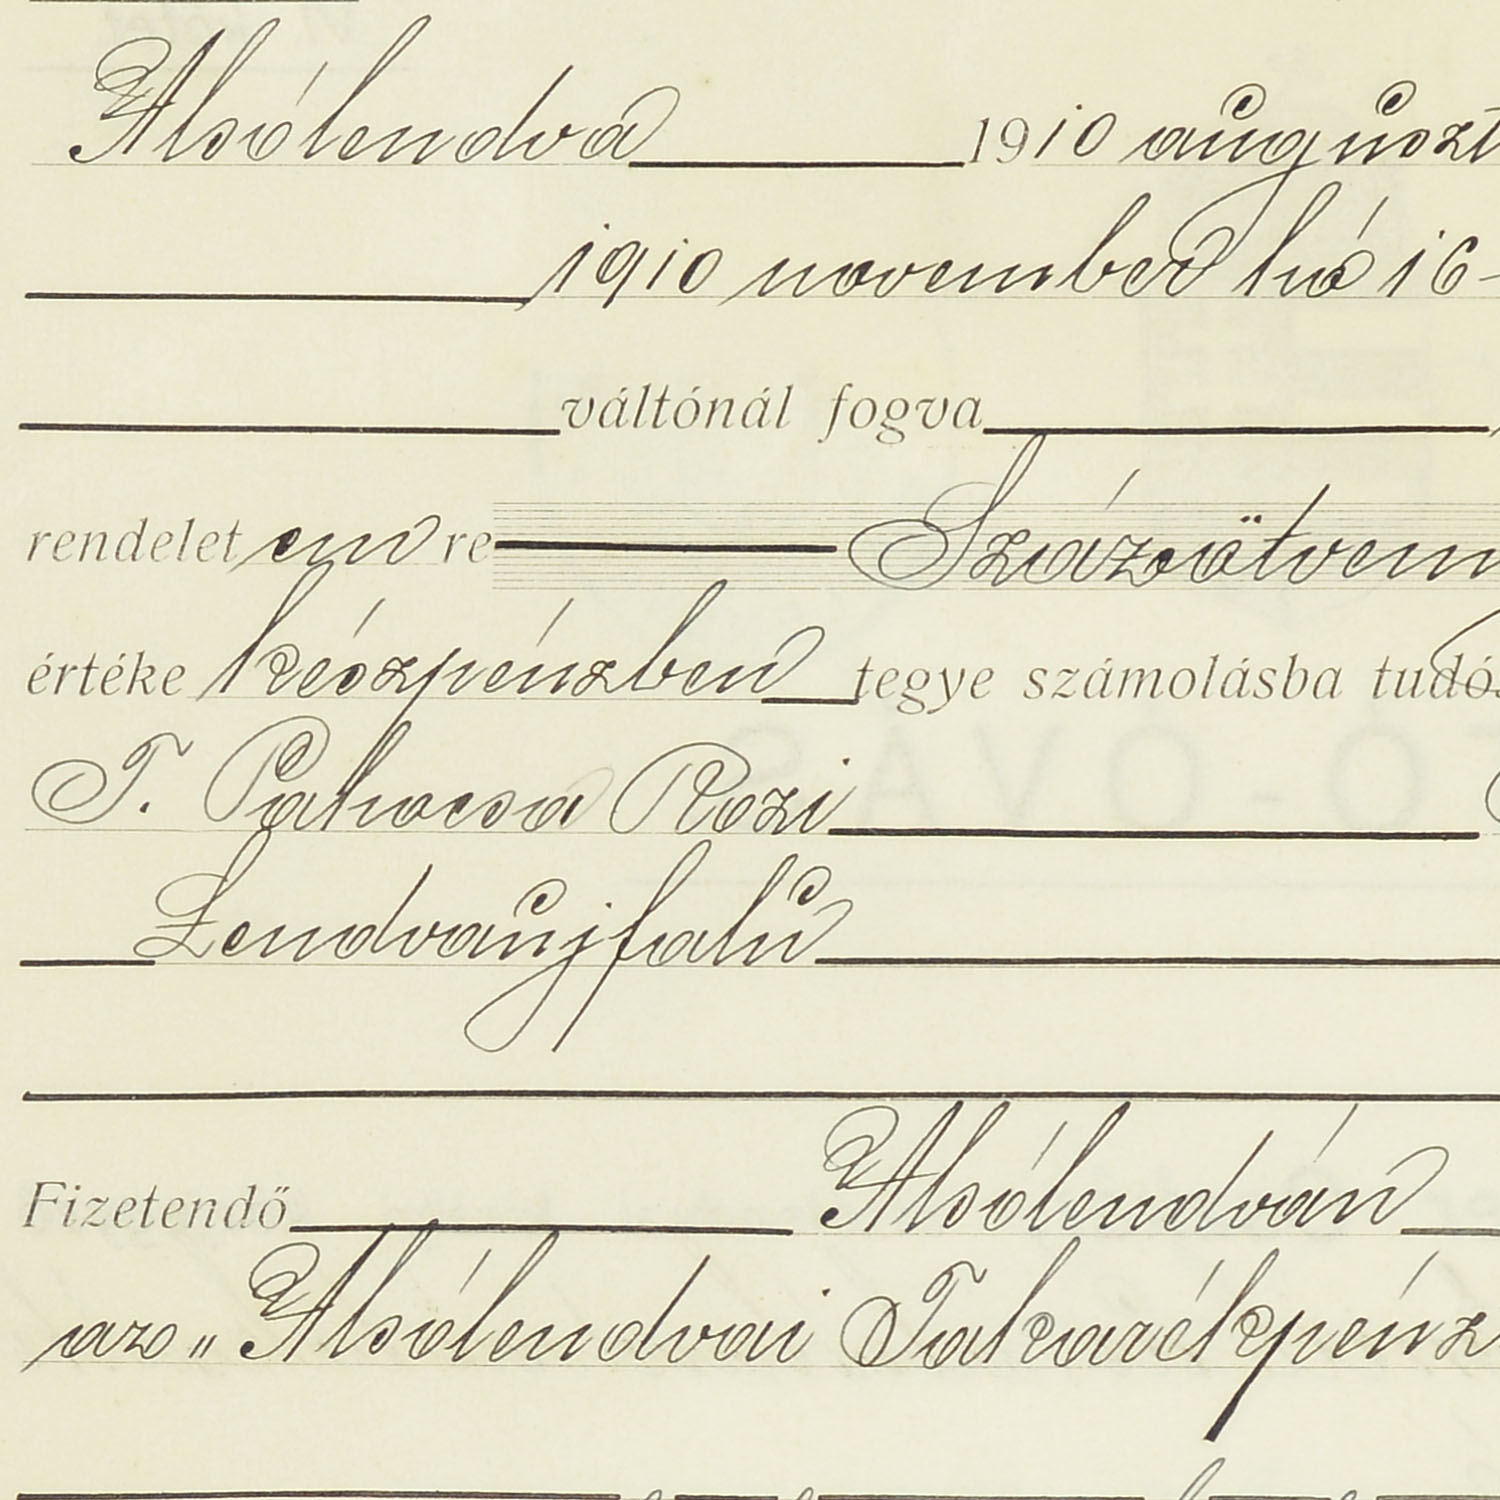 Alsólendva 1910 auguszt
1910 november hó 16-
váltónál fogva
rendelet em re Százötven
értéke készpénzben tegye számolásba tudós
T. Pahocsa Rozi
Lendvaujfalu
Fizetendő Alsólendván
az „Alsólendvai Takarékpénz